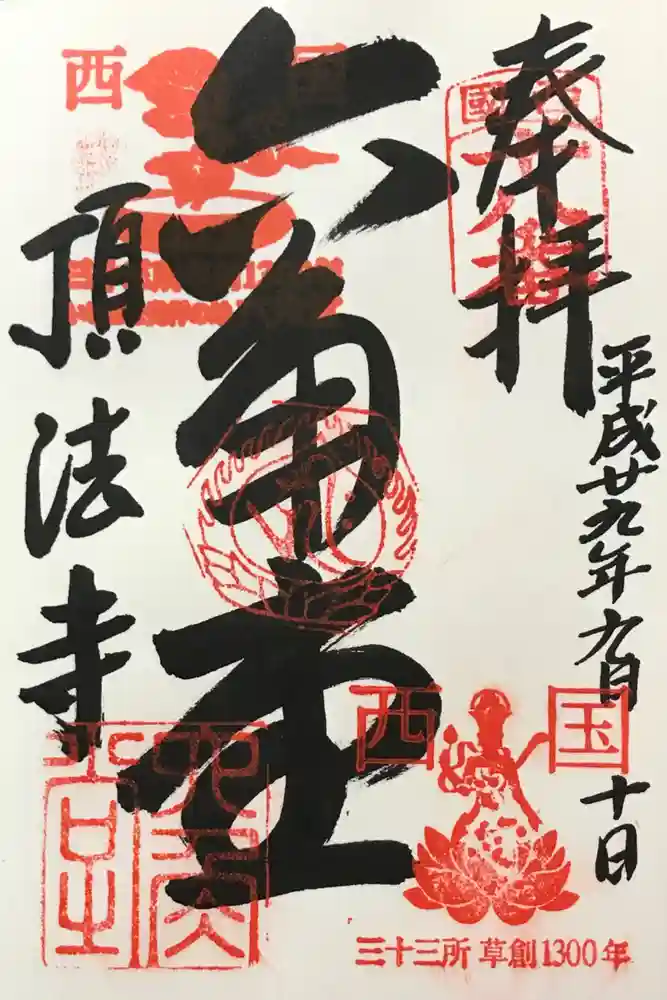 奉拝
平成廿九年九月十日
六角堂
頂法寺
西国
十八番
西国
三十三所 草創1300年
六角堂